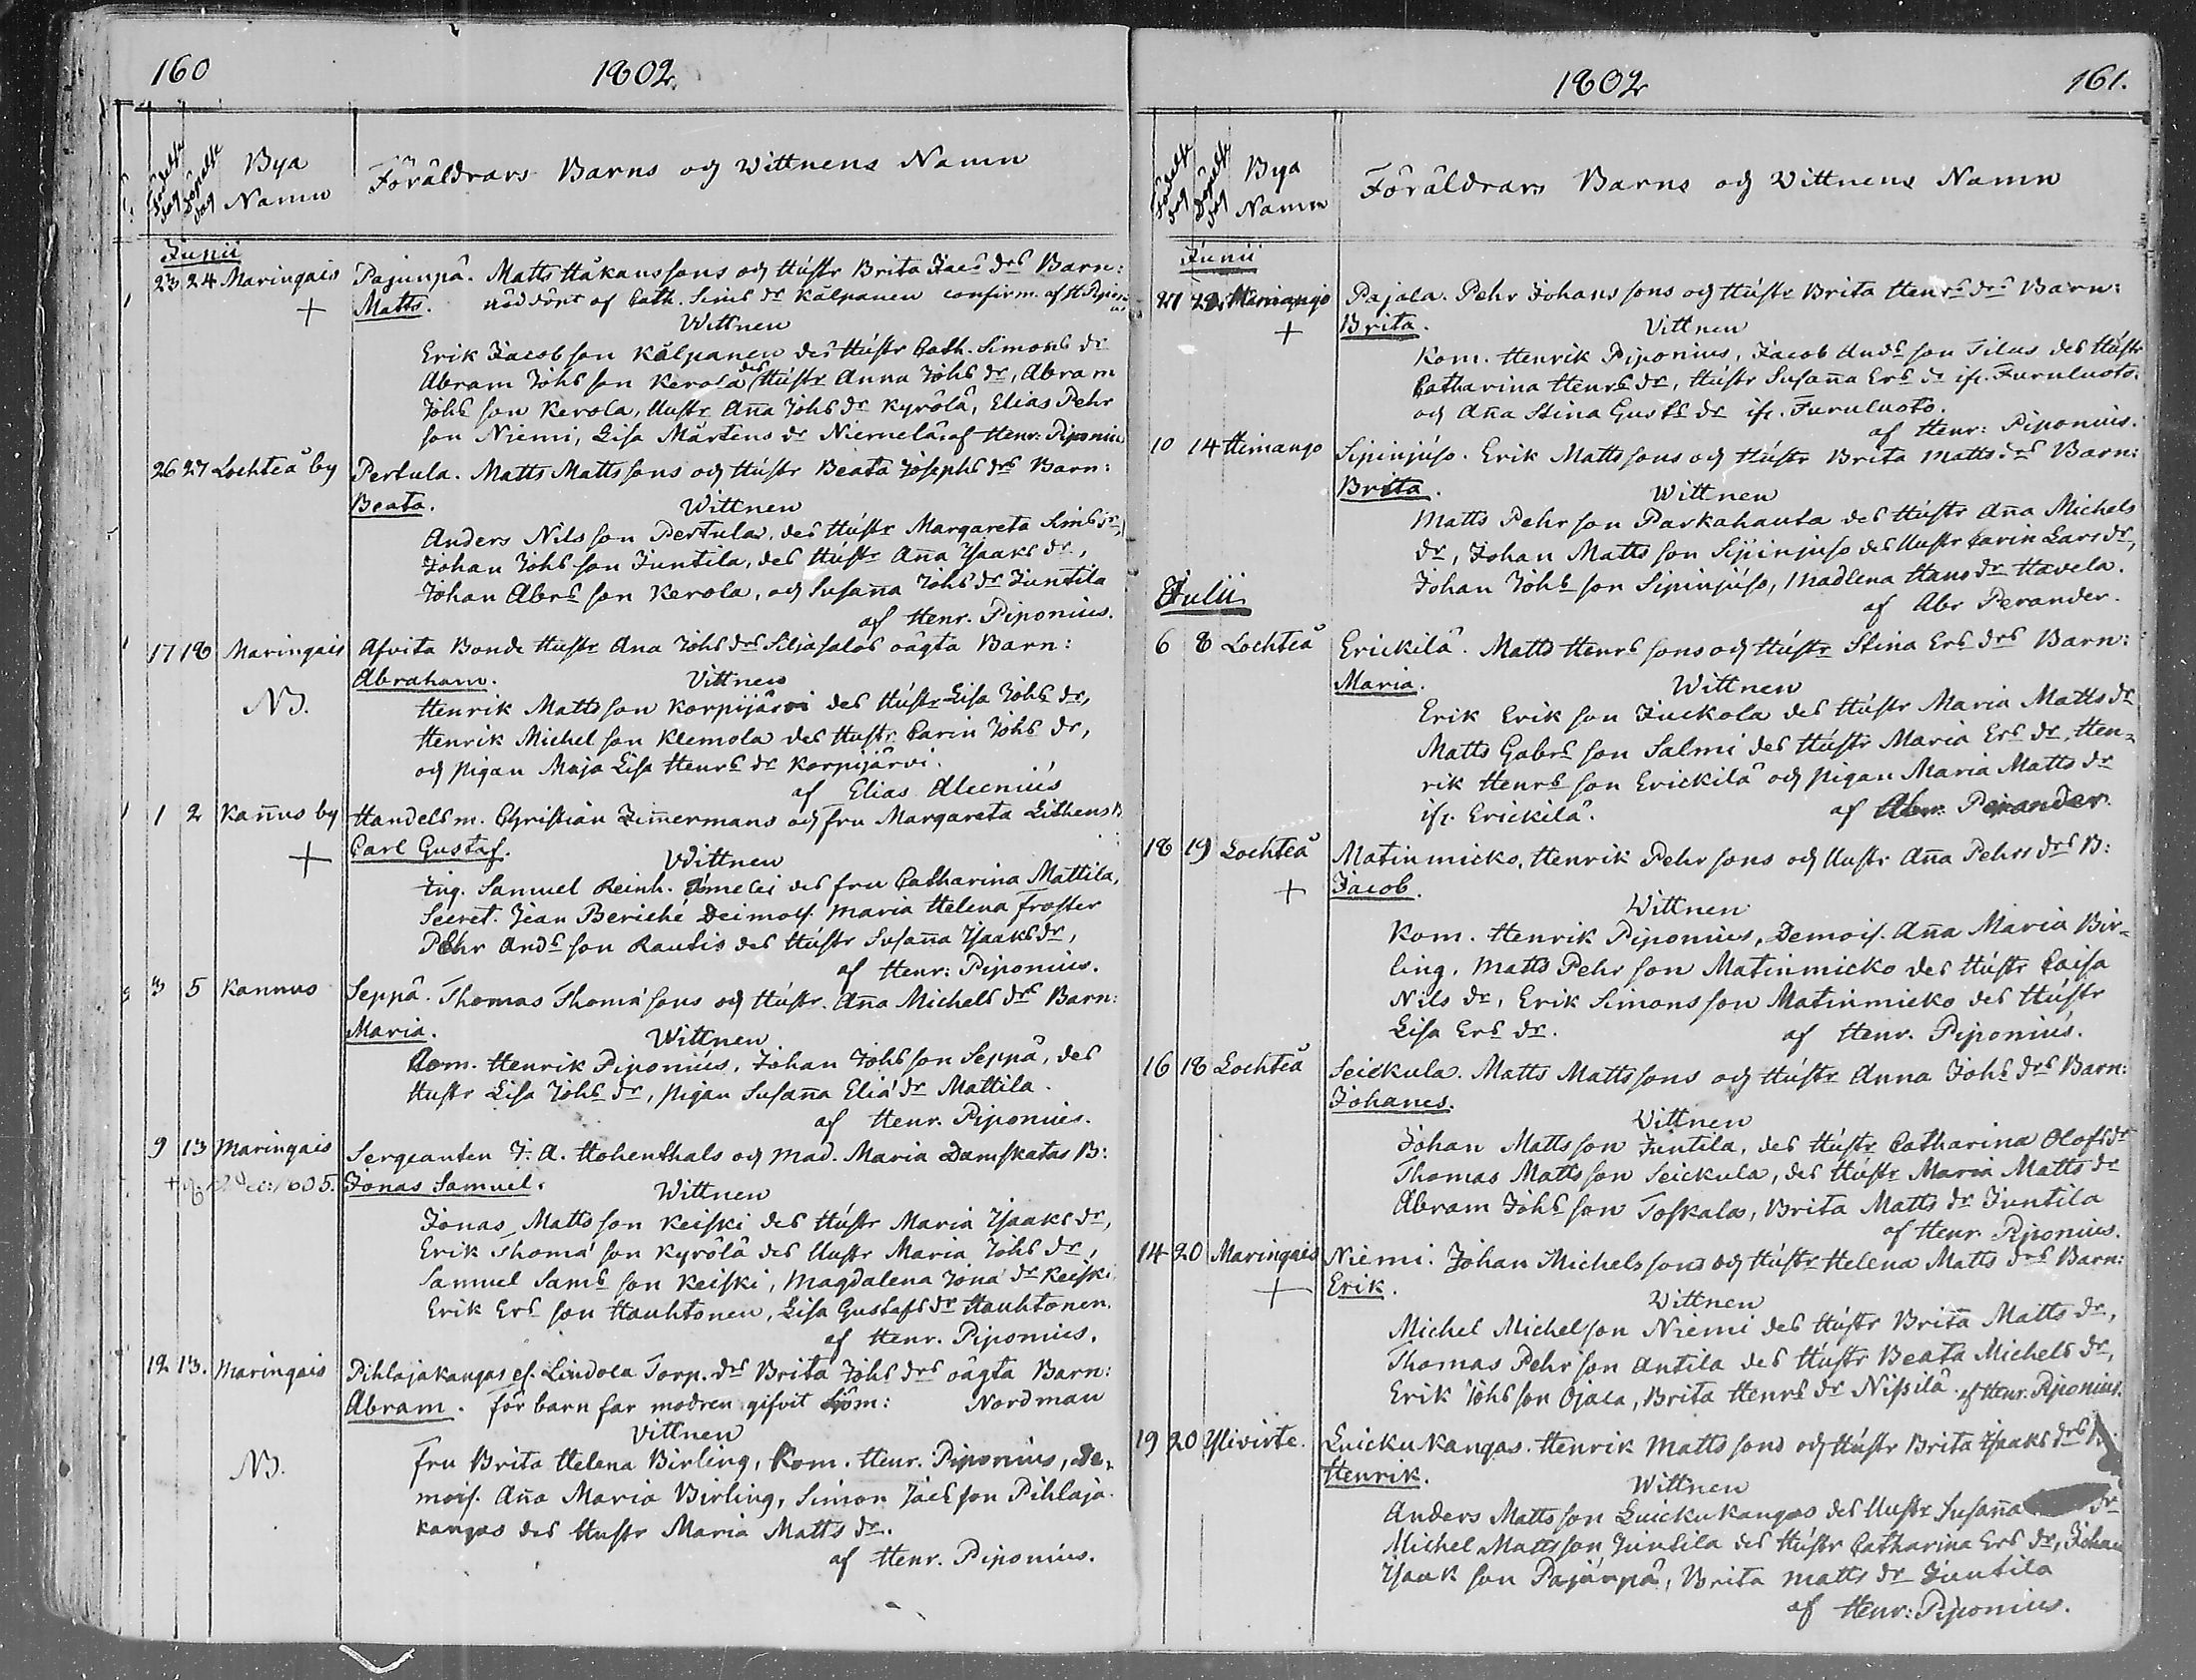 160
1802.
Födelse dag
Döpelse dag
Bya Namn
Föräldrars Barns og Wittnens Namn
Junii
23 24 Maringais Pajunpä. Matts Håkans sons og Hustr Brita Jacs drs Barn:
+ Matts. nöddöpt af Cath. Sims dr Kälpanen confirm. af H Piponius
Wittnen
Erik Jacob son Kälpanen des Hustr Cath. Simons dr
Abram Johs son Kerola des Hustr Anna Johs dr, Abram
Johs son Kerola, Hustr Ana Johs dr Kyrölä, Elias Pehr
son Niemi, Lisa Mårtens dr Niemelä: af Henr: Piponius
26 27 Lochteå by Pertula. Matts Matts sons og Hustr Beata Josephs drs Barn:
Beata. Wittnen
Anders Nils son Pertula, des Hustr Margareta Sims dr,
Johan Johs son Juntila, des Hustr Ana Isaaks dr,
Johan Abrs son Kerola, og Susana Johs dr Juntila
af Henr. Piponius.
17 18 Maringais Afvita Bonde Hustr Ana Johs drs Siljasalos oägta Barn:
Abraham. Vittnen
NB. Henrik Matts son Korpijärvi des Hustr Lisa Johs dr,
Henrik Michel son Klemola des Hustr Carin Johs dr,
og pigan Maja Lisa Henrs dr Korpijärvi.
af Elias Alcenius
1 2 Kanus by Handelsm. Christian Zimermans og fru Margareta Lithens B
+ Carl Gustaf. Wittnen
Ing. Samuel Reinh. des fru Catharina Mattila,
Secret. Jean Beriché Demois. Maria Helena Froster
Pehr Ands son Rautis des Hustr Susana Isaaks dr,
af Henr: Piponius.
3 5 Kannus Seppä. Thomas Thomæ sons og Hustr. Ana Michels drs Barn:
Maria. Wittnen
Kom. Henrik Piponius, Johan Johs son Seppä, des
Hustr Lisa Johs dr, pigan Susana Eliæ dr Mattila.
af Henr. Piponius.
9 13 Maringais Sergeanten J. A. Hohenthals og Mad. Maria Damskatas B:
Dec: 1805. Jonas Samuel. Wittnen
Jonas Matts son Keiski des Hustr Maria Isaaks dr,
Erik Thomæ son Kyrölä des Hustr Maria Johs dr,
Samuel Sams son Keiski, Magdalena Jonæ dr Keiski
Erik Ers son Hauhtonen, Lisa Gustafs dr Hauhtonen.
af Henr. Piponius.
12 13. Maringais Pihlajakangas el. Lindola Torp. drs Brita Johs drs oägta Barn:
Abram. för barn far modren gifvit Nordman
Vittnen
NB. Fru Brita Helena Birling, Kom. Henr. Piponius, De-
mois. Ana Maria Birling, Simon Jacs son Pihlaja-
kangas des Hustr Maria Matts dr.
af Henr. Piponius.
1802
161.
Födelse dag
Döpelse dag
Bya Namn
Föräldrars Barns og Wittnens Namn
Junii
27 Himango Pajala. Pehr Johans sons og Hustr Brita Henrs drs Barn:
+ Brita. Vittnen
Kom. Henrik Piponius, Jacob Ands son Tilus des Hustr
Catharina Henrs dr, Hustr Susana Ers dr ifr. Furuluoto.
og Ana Stina Gusts dr ifr. Furuluoto.
af Henr: Piponius.
10 14 Himango Sipinjuso. Erik Matts sons og Hustr Brita Matts drs Barn:
Brita. Wittnen
Matts Pehr son Parkahauta des Hustr Ana Michels
dr, Johan Matts son Sipinjuso des Hustr Carin Lars dr,
Johan Johs son Sipinjuso, Madlena Hans dr Havela.
af Abr Perander.
Julii
6 8 Lochteå Erickilä. Matts Henrs sons og Hustr Stina Ers drs Barn:
Maria. Wittnen
Erik Erik son Juckola des Hustr Maria Matts dr
Matts Gabrs son Salmi des Hustr Maria Ers dr, Hen-
rik Henrs son Erickilä og pigan Maria Matts dr
ifr. Erickilä. af Abr. Perander.
18 19 Lochteå Matinmicko, Henrik Pehr sons og Hustr Ana Pehrs drs B:
+ Jacob. Wittnen
Kom. Henrik Piponius, Demois. Ana Maria Bir-
ling. Matts Pehr son Matinmicko des Hustr Caisa
Nils dr, Erik Simons son Matinmicko des Hustr
Lisa Ers dr. af Henr. Piponius.
16 18 Lochteå Seickula. Matts Matts sons og Hustr Anna Johs drs Barn:
Johanes. Vittnen
Johan Matts son Juntila, des Hustr Catharina Olofs dr
Thomas Matts son Seickula, des Hustr Maria Matts dr
Abram Johs son Toskala, Brita Matts dr Juntila
af Henr. Piponius.
14 20 Maringais Niemi. Johan Michels sons og Hustr Helena Matts drs Barn:
+ Erik. Wittnen
Michel Michel son Niemi des Hustr Brita Matts dr,
Thomas Pehr son Antila des Hustr Beata Michels dr,
Erik Johs son Ojala, Brita Henrs dr Nissilä. af Henr. Piponius.
19 20 Ylivirte. Luickukangas. Henrik Matts sons og Hustr Brita Isaaks drs
Henrik. Wittnen
Anders Matts son Luickukangas des Hustr Susana dr
Michel Matts son Juntila des Hustr Catharina Ers dr, Johan
Isaak son Pajunpä, Brita Matts dr Juntila
af Henr: Piponius.